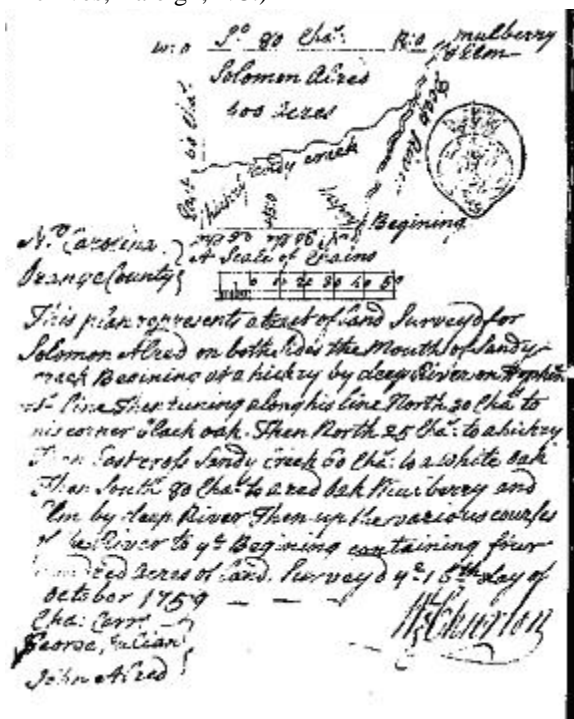 W:O So 80 Cha: R:O mulberry
& Elm
Solomon Alred
400 acres
Deep River
East 60 Cha:
Sandy creek
hickery
B:O
Begining
No 20
A Scale of Chains
No. Carolina
Orange County
10 20 30 40 50
This plan represents a tract of Land Surveyd for
Solomon Alred on both sides the Mouth of Sandy
creek Begining at a hickry by deep River on
line Then runing along his line North 20 Cha: to
his corner black oak. Then North 25 Cha: to a hickry
Then East cross Sandy creek 60 Cha: to a white oak
Then South 80 Cha: to a red oak Mulberry and
Elm by deep River Then up the various courses
of the River to ye Begining containing four
hundred acres of Land. Surveyd ye 15th day of
october 1759
Cha: Carr
George Julian
Wm Churton
John Alred